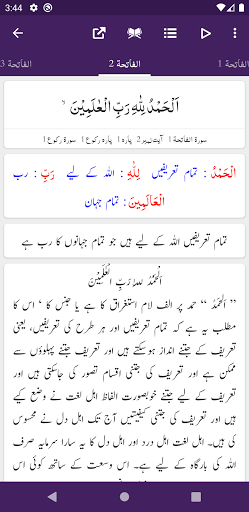 3:44
الفاتحة 1
الفاتحة 2
الفاتحة 3
اَلْحَمْدُ لِلّٰهِ رَبِّ الْعٰلَمِیْنَ
سورة الفاتحة 1 آیت نمبر 2 پارہ 1 پارہ رکوع 1 سورہ رکوع 1
اَلْحَمْدُ : تمام تعریفیں لِلّٰہِ : اللہ کے لیے رَبِّ : رب
الْعَالَمِينَ : تمام جہان
تمام تعریفیں اللہ کے لیے ہیں جو تمام جہانوں کا رب ہے
اَلْحَمْدُ لِلّٰہِ رَبِّ الْعٰلَمِیْنَ
” اَلْحَمْدُ “ حمد پر الف لام استغراق کا ہے یا جنس کا ‘ اس کا
مطلب یہ ہے کہ تمام تعریفیں اور ہر طرح کی تعریفیں، یعنی
تعریف کے جتنے انداز ہوسکتے ہیں اور تعریف کی جتنے پہلوؤں سے
ممکن ہے اور تعریف کی جتنی اقسام تصور کی جاسکتی ہیں اور
تعریف کے لیے جتنے خوبصورت الفاظ اہل لغت نے وضع کیے
ہیں اور تعریف کی جتنی کیفیتیں آج تک اہل دل نے محسوس
کی ہیں۔ اہل لغت اہل درد اور اہل دل کا یہ سارا سرمایہ صرف
اللہ کی بارگاہ کے لیے ہے۔ اس وسعت کے ساتھ کوئی اس